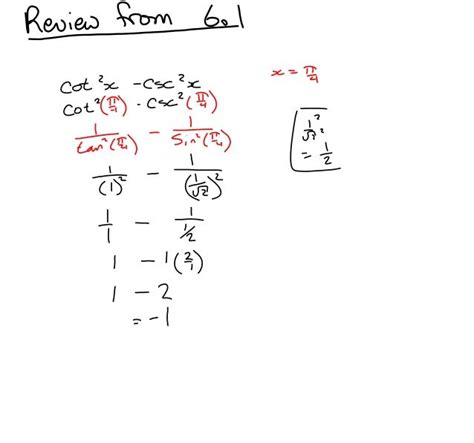 Review from 6.1
cot²x - csc²x
x = π/4
cot²(π/4) - csc²(π/4)
1/tan²(π/4) - 1/sin²(π/4)
1²/√2²
= 1/2
1/(1)² - 1/(1/√2)²
1/1 - 1/(1/2)
1 - 1(2/1)
1 - 2
= -1